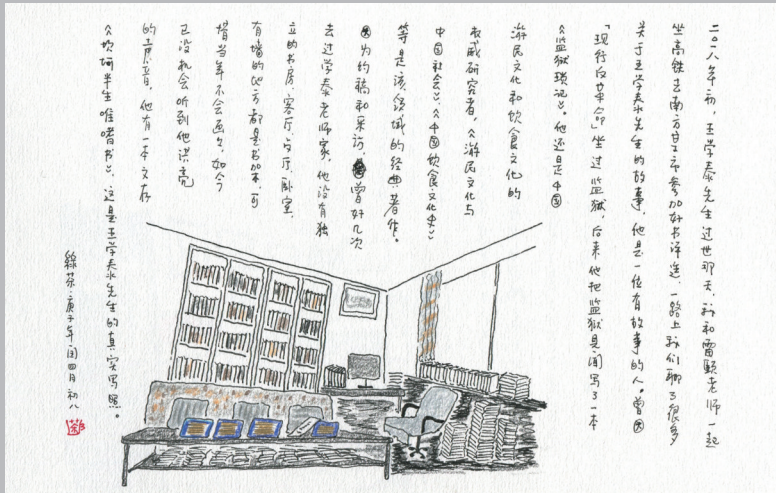 二〇一八年初，王学泰先生过世那天，我和雷颐老师一起
坐高铁去南方某市参加好书评选，一路上我们聊了很多
关于王学泰先生的故事，他是一位有故事的人。曾因
「现行反革命」坐过监狱，后来他把监狱见闻写了一本
《监狱琐记》。他还是中国
游民文化和饮食文化的
权威研究者，《游民文化与
中国社会》《中国饮食文化史》
等是该领域的经典著作。
因为约稿和采访，曾好几次
去过学泰老师家，他没有独
立的书房，客厅、餐厅、卧室，
有墙的地方都是书架，可
惜当年不会画画，如今
已没机会听到他洪亮
的声音，他有一本文存
《坎坷半生唯嗜书》，这是王学泰先生的真实写照。
绿茶·庚子年闰四月初八